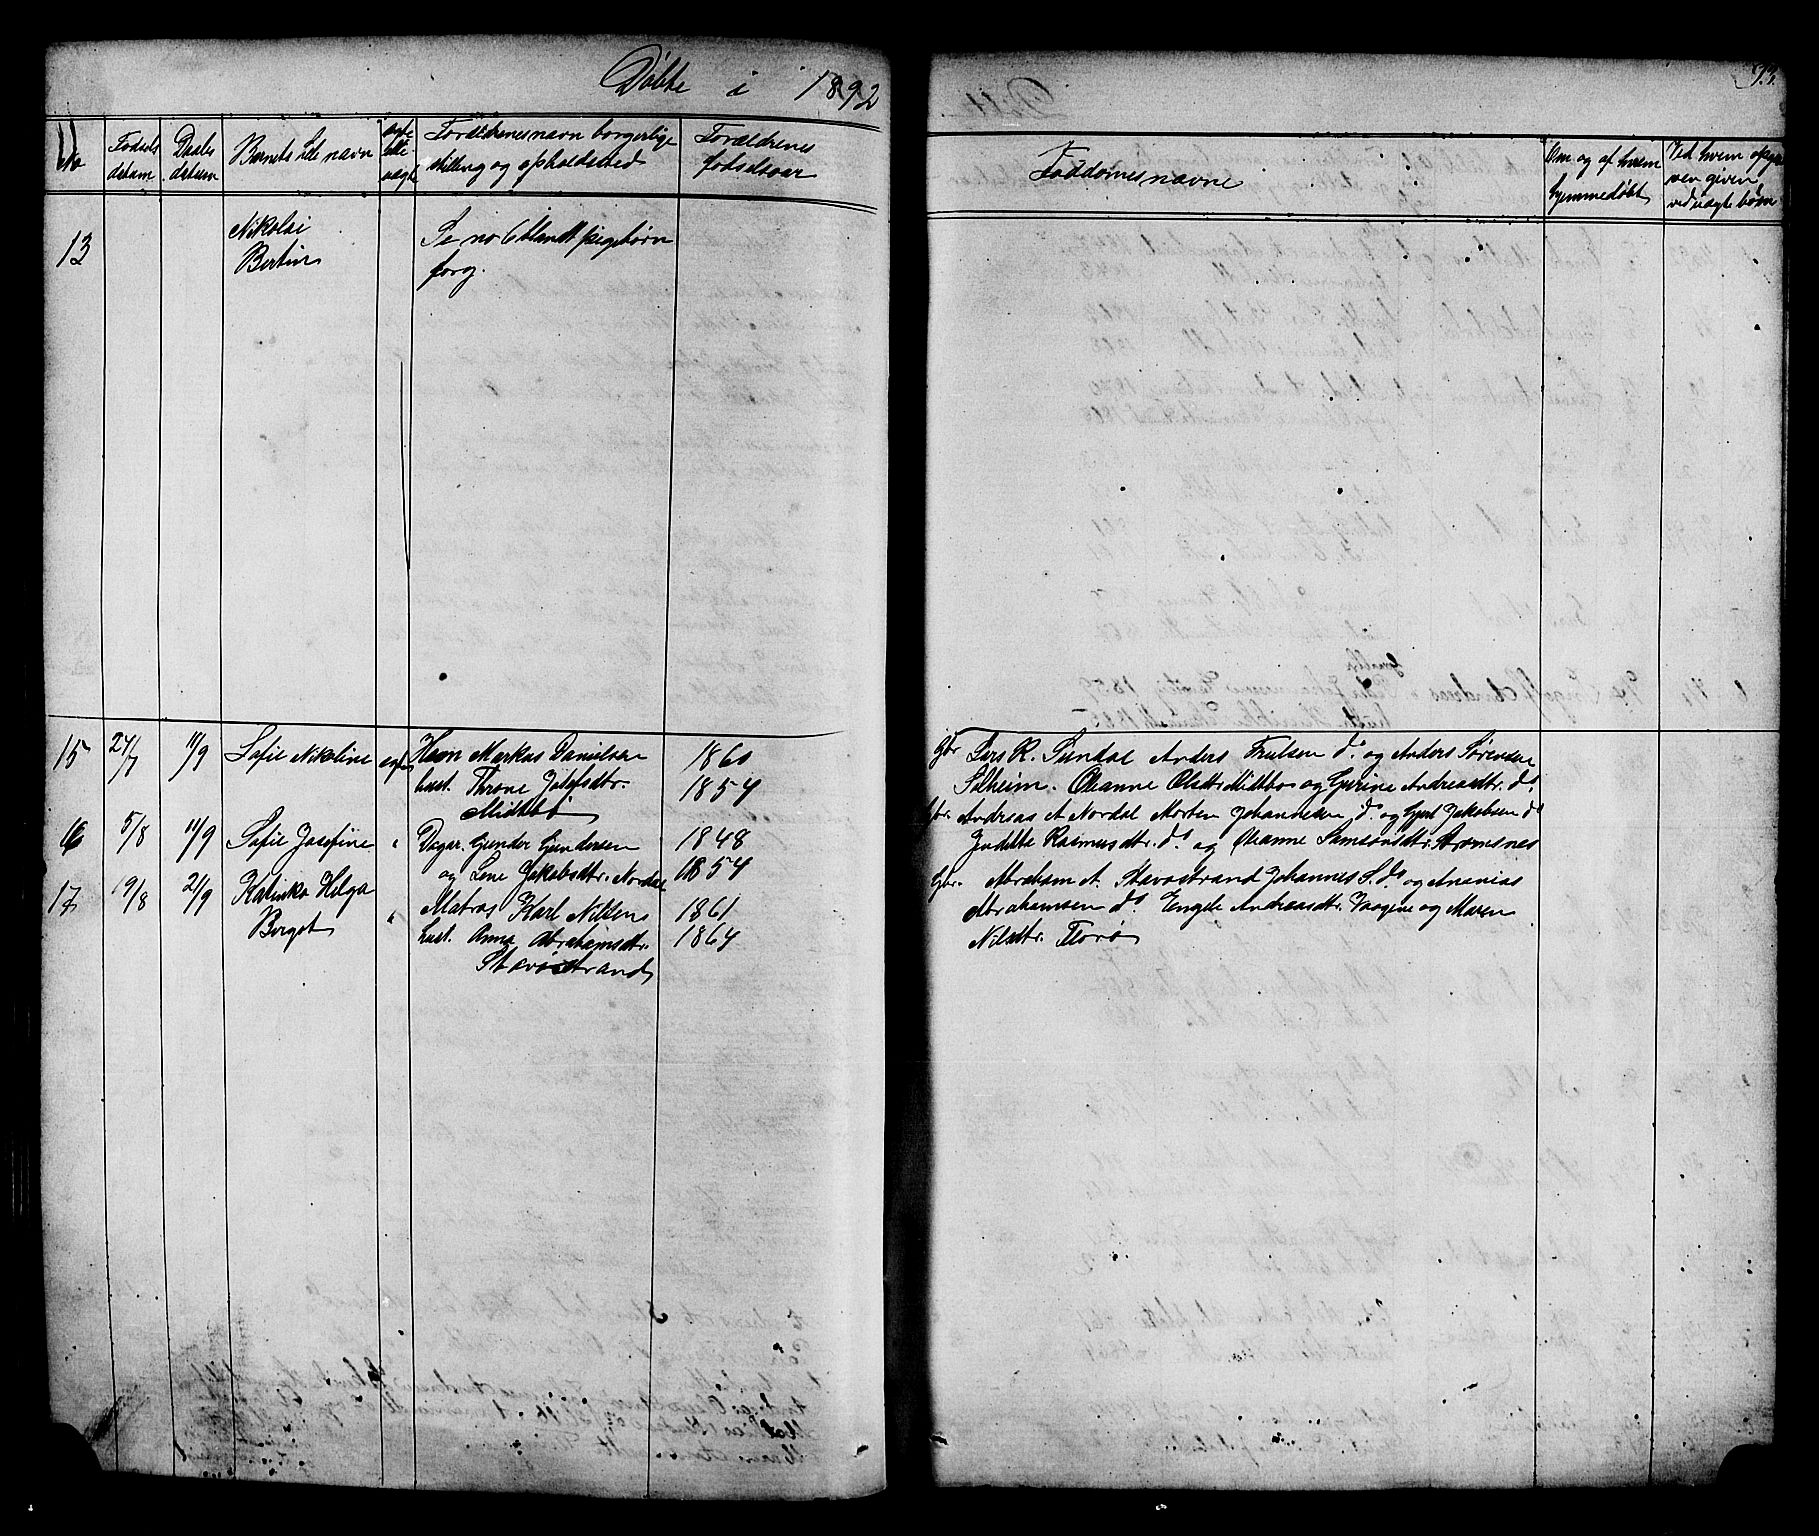 Døbte i 1892
No
Fødsels datum
Daabs datum
Barnets fule navn
ægte elle uægte
Forældrenes navn borgerlige
stilling og opholdssted
Forældrenes
fødselsaar
13
Nikolai
Bertin
Se no 6 blandt pigebørn
forg.
15 24/7 11/9 Sofie Nikoline ægte Huus Markus Danielsen 1860
hust. Throne Josefsdtr. 1854
Midtbø
16 5/8 11/9 Sofie Josefine " Dagar. Gunder Gundersen 1848
og Lene Jakobsdtr. Nordal 1854
17 19/8 21/9 Katinka Helga " Matros Karl Nilsen 1861
Bergot hust. Anna Abrahamsdtr. 1864
Stavøstrand
Faddernes navne
Om og af hvem
hjemmedøbt
Ved hvem opgaven given
ved uægte børn
93.
Gbr Lars R. Sundal Anders Truulsen do. og Anders Sørensen
Solheim. Oleanne Olsdtr. Midtbø og Gurine Andreasdtr. do.
Gbr. Andreas A Nordal Morten Johannesen do. og Gjert Jakobsen do
Jndebe Rasmusdtr. do. og Oleanne Samsonsdtr. Strømsnes
Gbr. Abraham A. Stavøstrand Johannes S. do. og Ananias
Abrahamsen do. Engele Andreasdtr. Vaagene og Maren
Nilsdtr. Florø